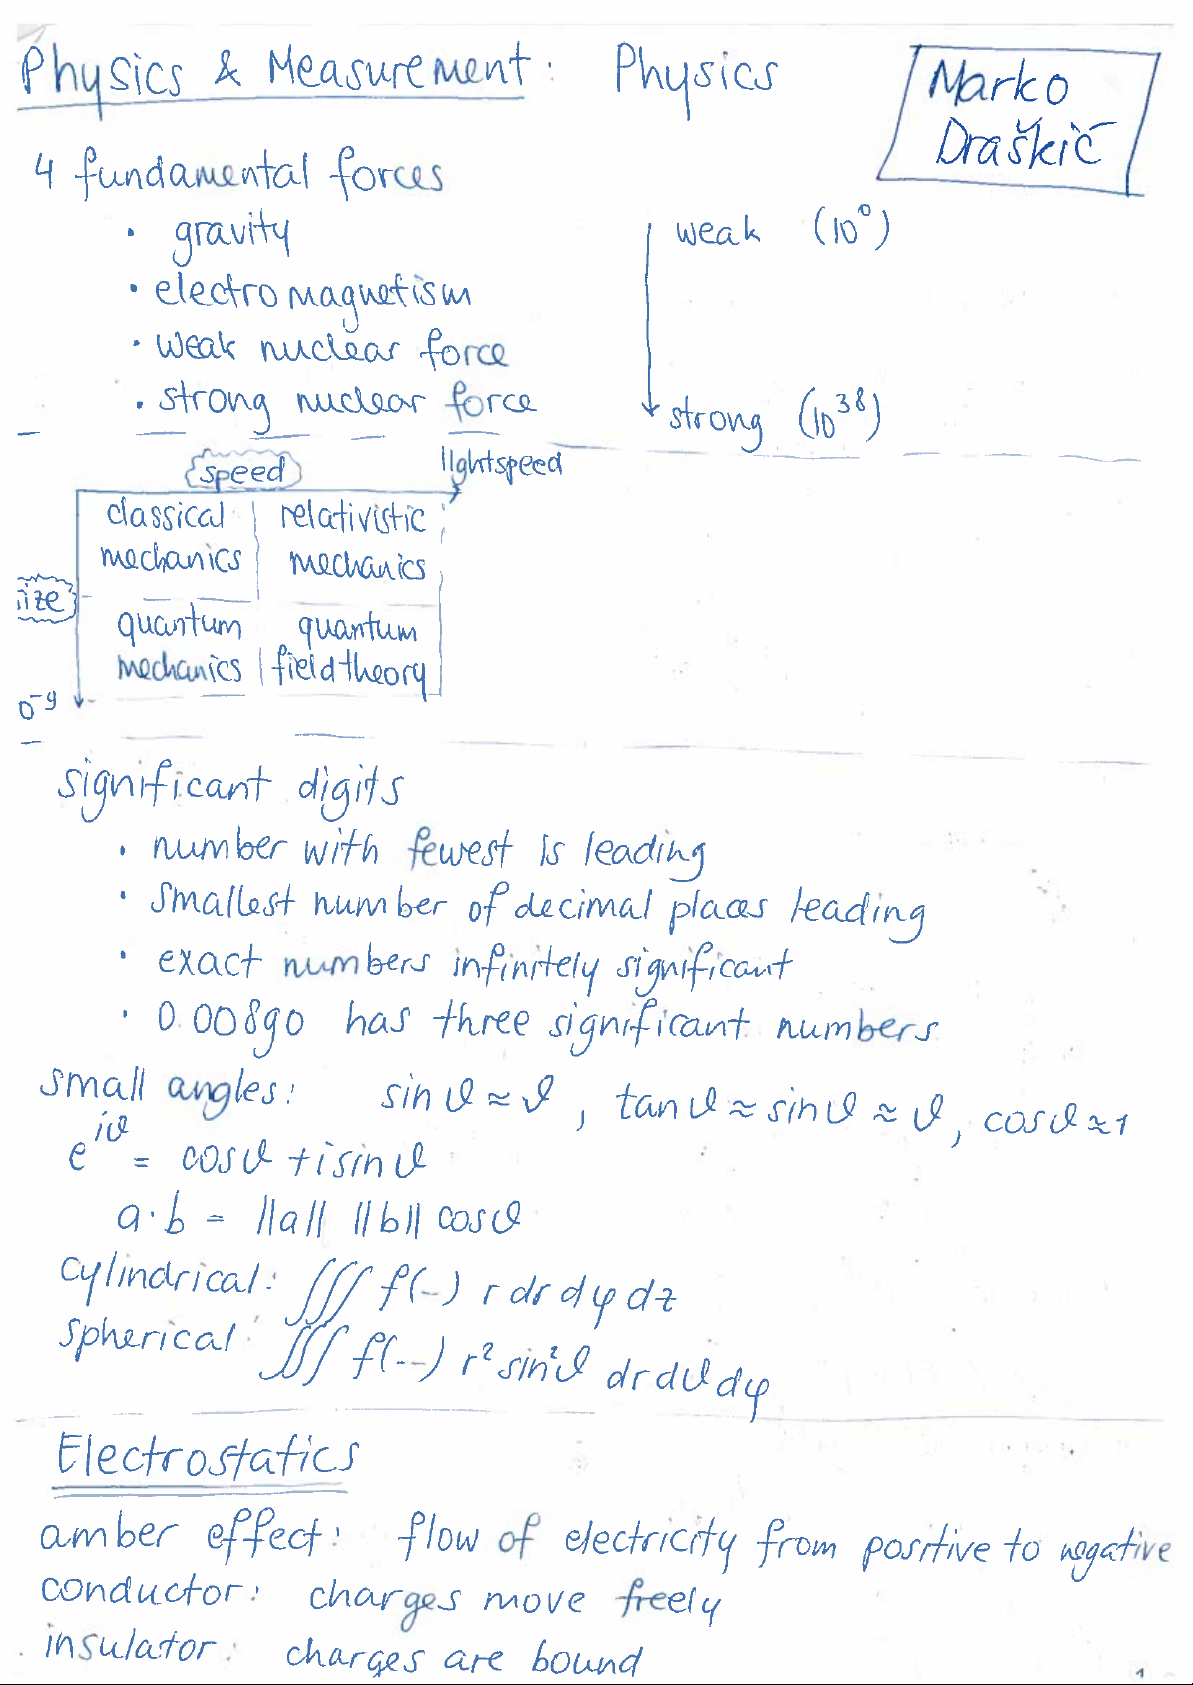 Physics & Measurement: Physics
Marko
Draškić
4 fundamental forces
· gravity
weak (10⁰)
· electromagnetism
· weak nuclear force
· strong nuclear force
strong (10³⁸)
speed
lightspeed
classical relativistic
mechanics mechanics
ize
quantum quantum
mechanics field theory
0⁻⁹
significant digits
· number with fewest is leading
· smallest number of decimal places leading
· exact numbers infinitely significant
· 0.00890 has three significant numbers
small angles: sin ϑ ≈ ϑ, tan ϑ ≈ sin ϑ ≈ ϑ, cos ϑ ≈ 1
e^{iϑ} = cos ϑ + i sin ϑ
a · b = ||a|| ||b|| cos ϑ
cylindrical: ∭ f(--) r dr dφ dz
spherical: ∭ f(--) r² sin²ϑ dr dϑ dφ
Electrostatics
amber effect: flow of electricity from positive to negative
conductor: charges move freely
insulator: charges are bound
1